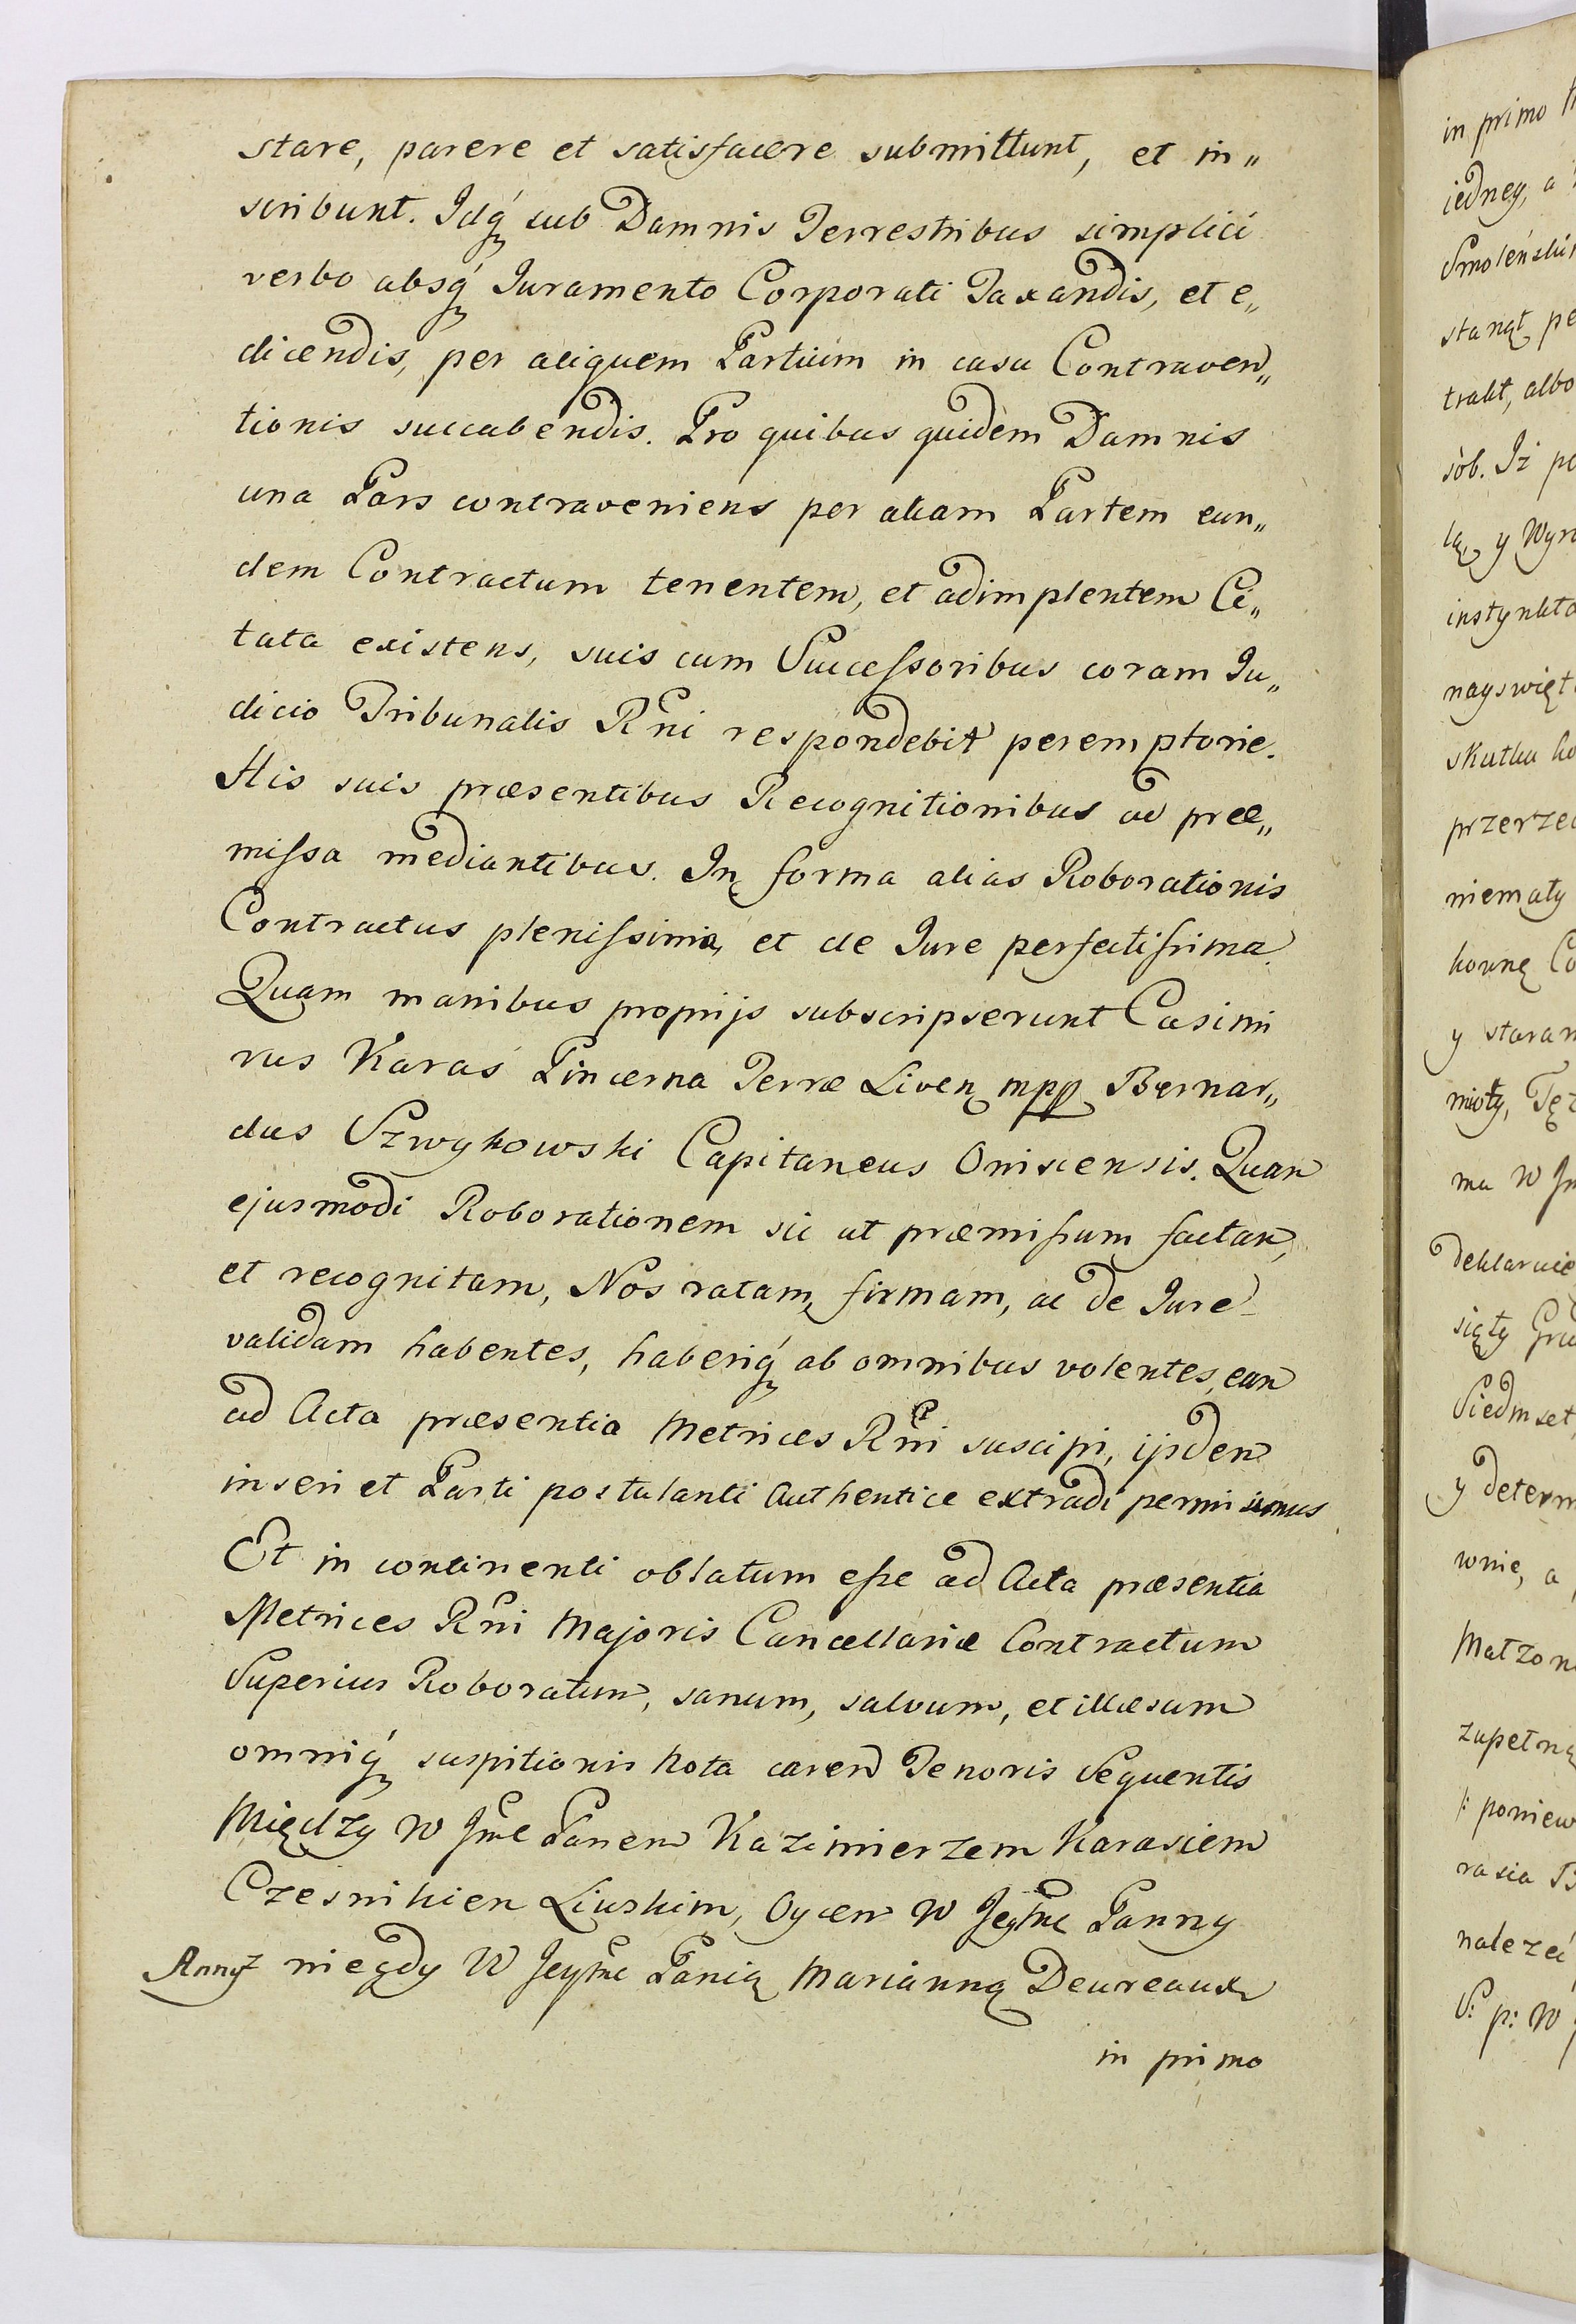 stare, parere et satisfacere submittunt, et in„
scribunt. Idq́ sub Damnis Terrestribus simplici
verbo absq́ Iuramento Corporali Taxandis, et e„
dicendis, per aliquem Partium in casu Contraven„
tionis succubendis. Pro quibus quidem Damnis
una Pars contraveniens per aliam Partem eun„
dem Contractum tenentem, et adimplentem Ci„
tata existens, suis cum Successoribus coram Iu„
dicio Tribunalis Rñi respondebit peremptorie.
His suis præsentibus Recognitionibus ad præ„
missa mediantibus. In forma alias Roborationis
Contractus plenissima, et de Iure perfectissima.
Quam manibus proprijs subscripserunt Casimi
rus Karaś Pincerna Terræ Liven mpp Bernar„
dus Szwykowski Capitaneus Oniscensis. Quam
ejusmodi Roborationem sic ut præmissum factam,
et recognitam, Nos ratam, firmam, ac de Iure
validam habentes, haberiq́ ab omnibus volentes, eam
ad Acta præsentia Metrices Rñi suscipi, ijsdem
inseri et Parti postulanti Authentice extradi permisimus
Et in continenti oblatum esse ad Acta præsentia
Metrices Rñi Majoris Cancellariæ Contractum
Superius Roboratum, sanum, salvum, et illæsum
omniq́ suspitionis nota caren Tenoris Sequentis
Między W Jmc Panem Kazimierzem Karasiem
Czesnikiem Liwskim, Oycem W Jeymc Panny
Anny z niegdy W Jeymc Panią Marianną Deureaux
in primo
in primo
iedney, a
Smoleńskim
stanął pe
trakt, albo
sòb. Iż po
lą, y Wyro
instynkto
nayswięt
skutku ko
przerzec
niemały
kowną Co
y staran
mioty, Tęż
ma W Jm
deklaruie
sięty Gru
Siedmset
y determ
wnie, a
Małzon
zupełną
/: poniew
rasia B
nalezeć
S: p: W